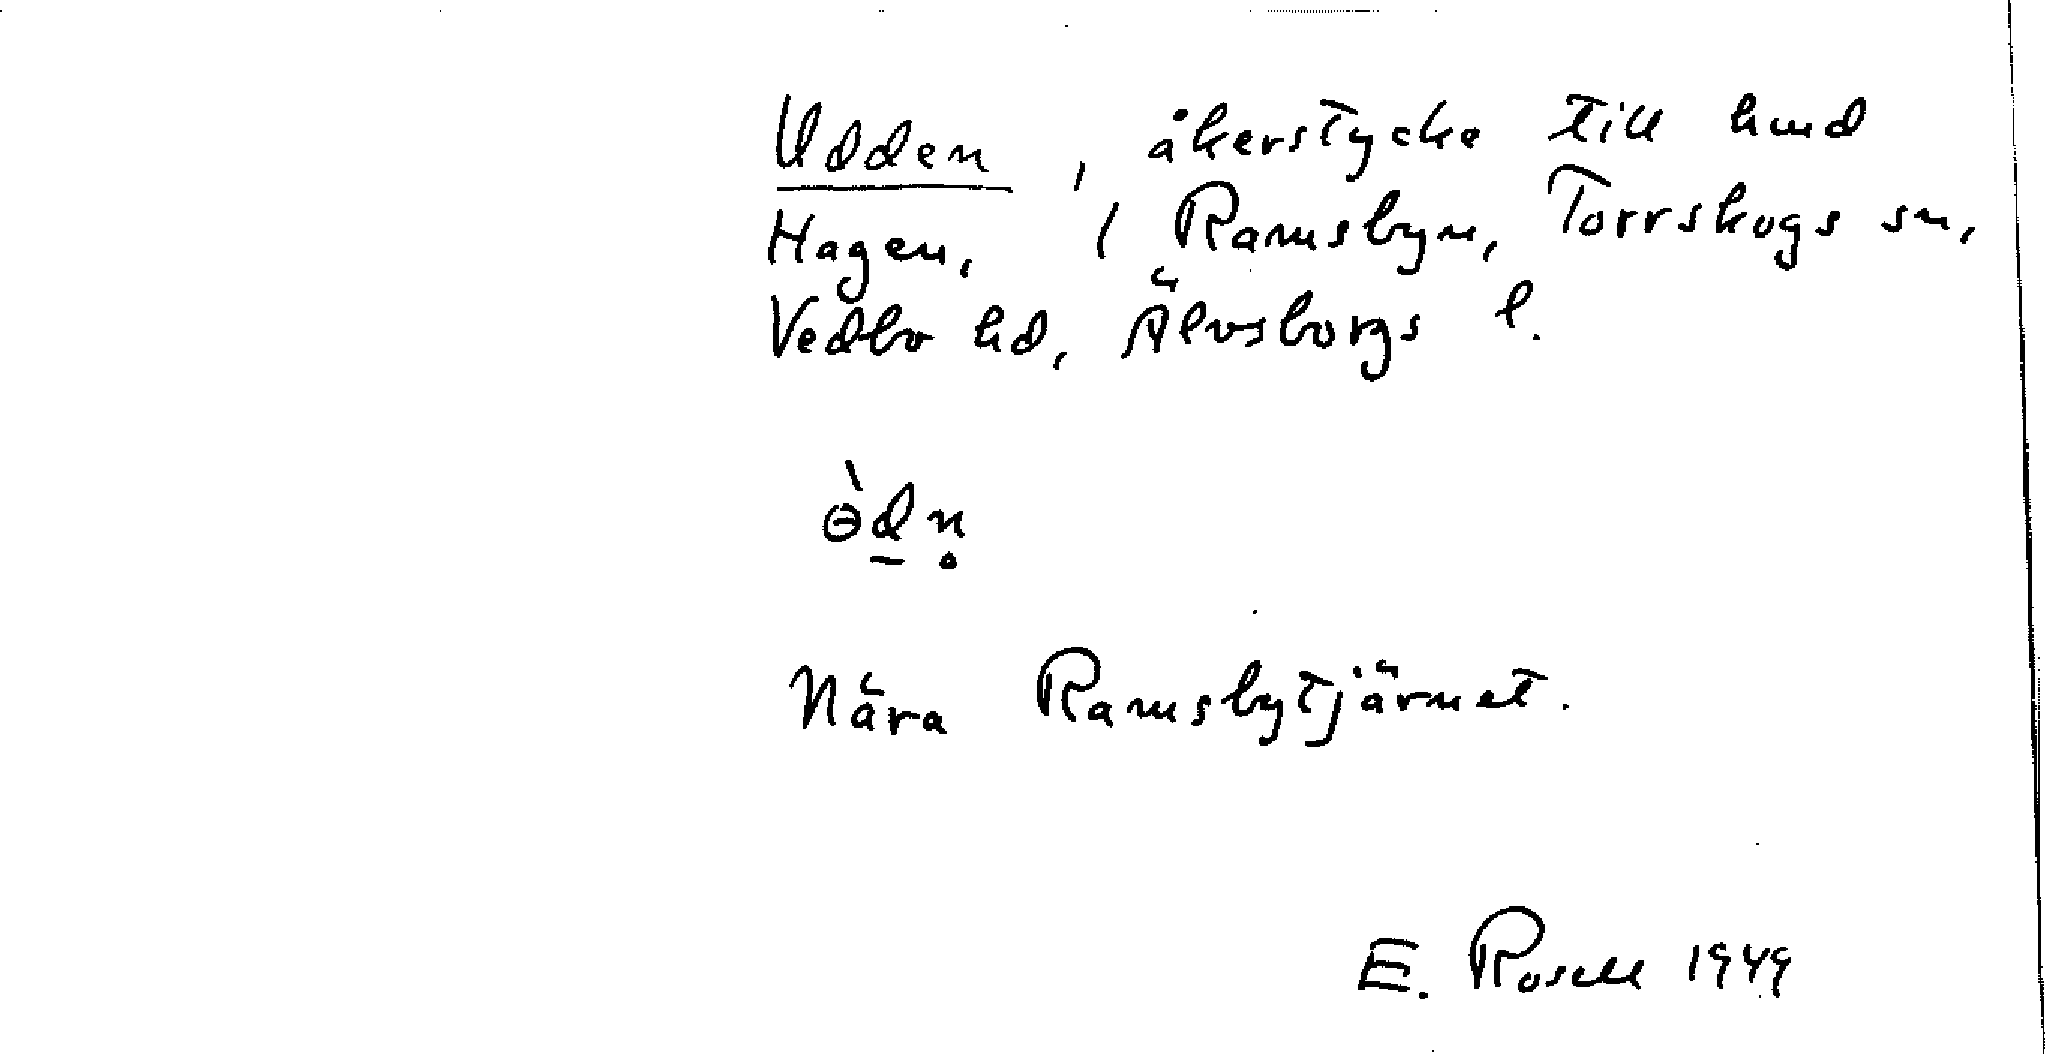 Udden, åkerstycke till hmd
Hagen, i Ramsbyn, Torrskogs sn,
Vedbo hd, Älvsborgs l.
ɵ̀d̲n̥
Nära Ramsbytjärnet.
E. Rosell 1949